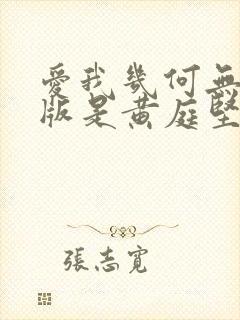 愛我幾何無
版是黄庭堅
張志寬